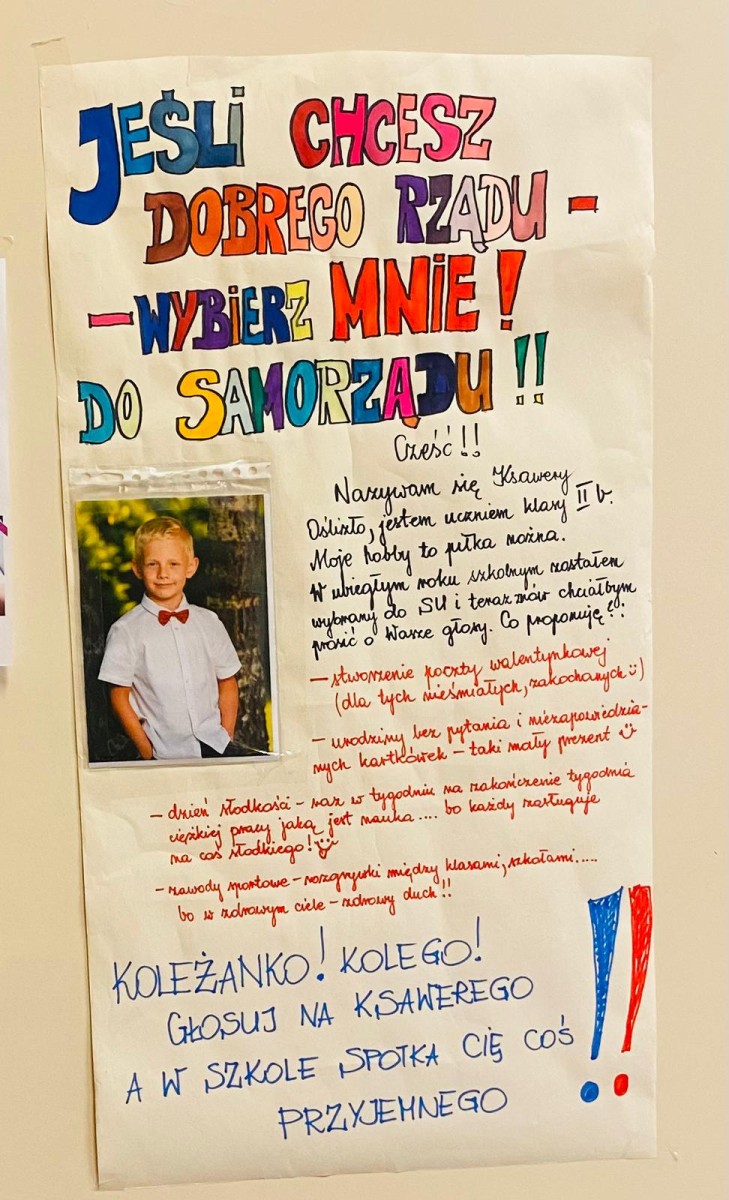 JEŚLI CHCESZ
DOBREGO RZĄDU -
- WYBIERZ MNIE!
DO SAMORZĄDU!!
Cześć!!
Nazywam się Ksawery
Oślizło, jestem uczniem klasy II b.
Moje hobby to piłka nożna.
W ubiegłym roku szkolnym zostałem
wybrany do SU i teraz znów chciałbym
prosić o Wasze głosy. Co proponuję?:
- stworzenie poczty walentynkowej
(dla tych nieśmiałych, zakochanych :))
- urodziny bez pytania i niezapowiedzia-
nych kartkówek - taki mały prezent :)
- dzień słodkości - raz w tygodniu na zakończenie tygodnia
ciężkiej pracy jaką jest nauka.... bo każdy zasługuje
na coś słodkiego! :)
- zawody sportowe - rozgrywki między klasami, szkołami.....
bo w zdrowym ciele - zdrowy duch!!
KOLEŻANKO! KOLEGO!
GŁOSUJ NA KSAWEREGO
A W SZKOLE SPOTKA CIĘ COŚ
PRZYJEMNEGO !!